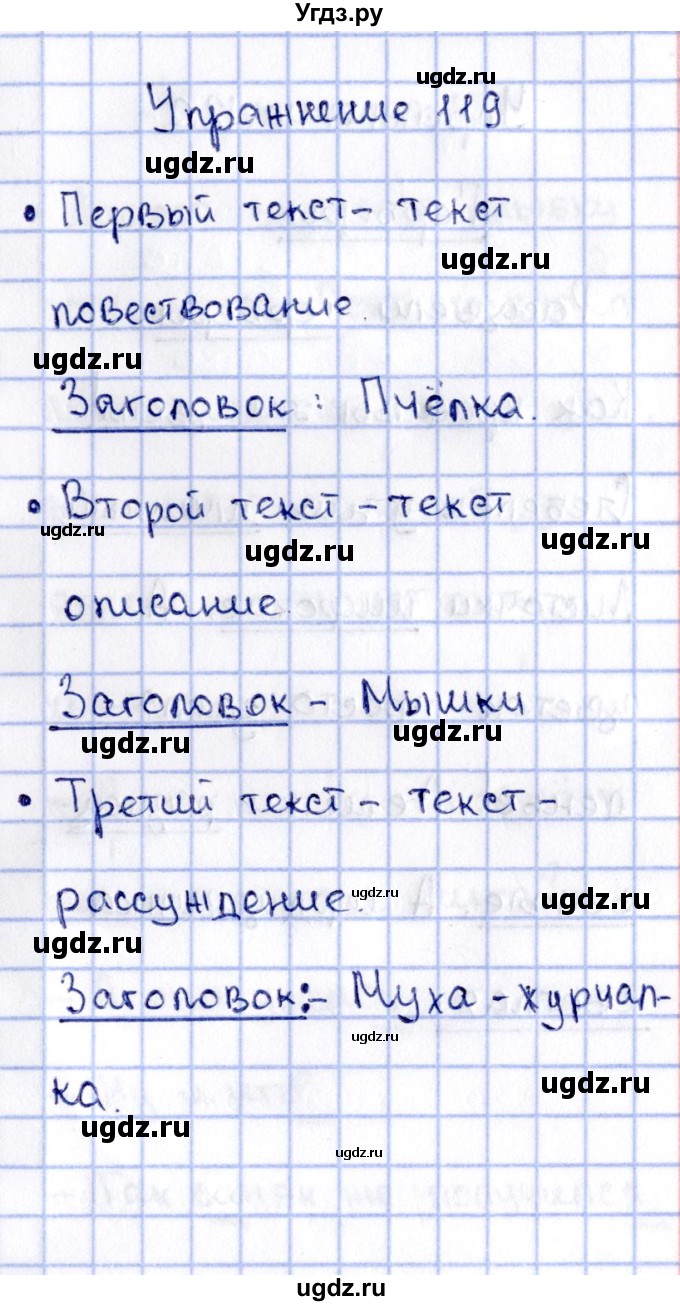 Угдз.ру
ugdz.ru
Упражнение 119
ugdz.ru
• Первый текст – текст
ugdz.ru
повествование.
ugdz.ru
Заголовок: Пчёлка.
• Второй текст – текст
ugdz.ru
ugdz.ru
ugdz.ru
описание.
Заголовок – Мышки
ugdz.ru
ugdz.ru
• Третий текст – текст –
рассуждение.
ugdz.ru
ugdz.ru
ugdz.ru
Заголовок:– Муха – журчал-
ugdz.ru
ка.
ugdz.ru
ugdz.ru
ugdz.ru
ugdz.ru